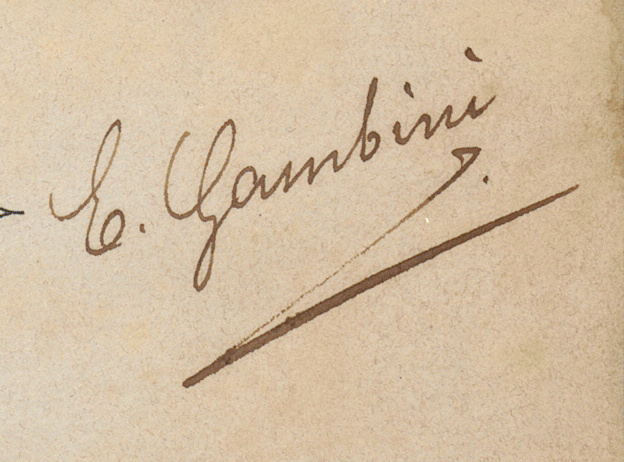 E. Gambini